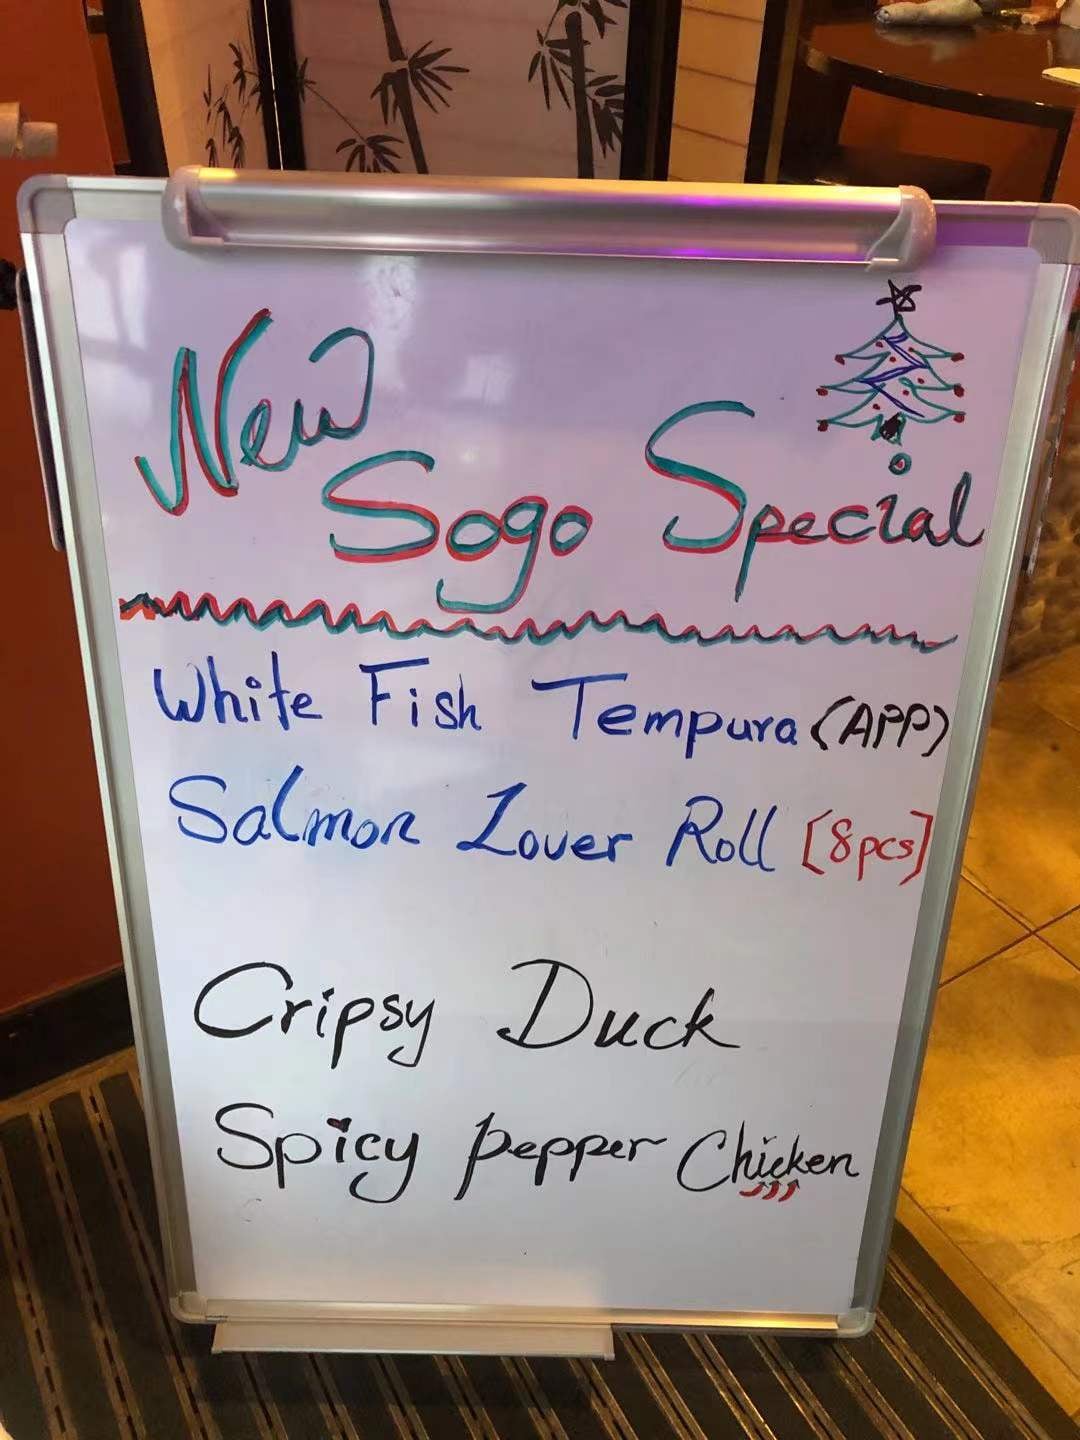 New
Sogo Special
White Fish Tempura (APP)
Salmon Lover Roll [8pcs]
Cripsy Duck
Spicy pepper Chicken